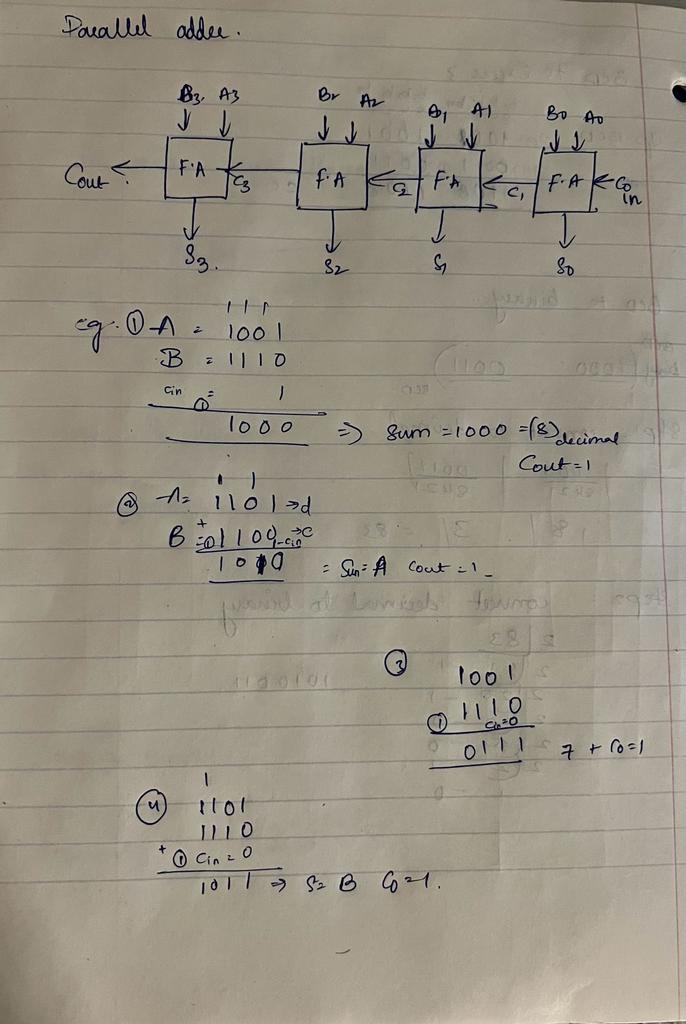 Parallel adder.
B3. A3 B2 A2 B1 A1 B0 A0
Cout F.A C3 F.A C2 F.A C1 F.A C0 in
S3. S2 S1 S0
1 1 1
eg. ① A = 1001
B = 1110
Cin = 1
①
1000 => Sum = 1000 = (8)decimal
Cout = 1
1 1
② A = 1101 → d
+
B = ① 1100 → c
1 - Cin
1010 = Sum = A Cout = 1
③ 1001
1110
① Cin=0
0111 7 + C0=1
1
④ 1101
1110
+ ① Cin = 0
1011 => S= B C0=1.